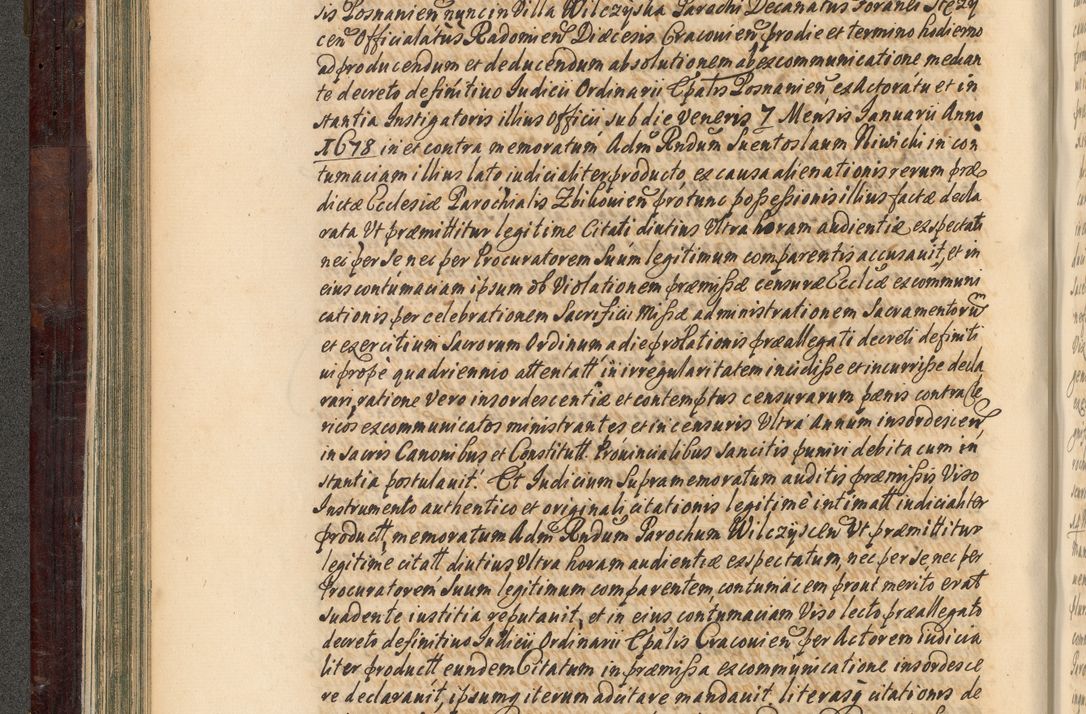 sis Posnanien nunc in Villa Wilczyska Parochi Decanatus Foranei Stęzy
cen Officialatus Radomien Diæcesis Cracouien prodie et termino hodierno
ad producendum et deducendum absolutionem ab excommunicatione median
te decreto definitiuo Iudicii Ordinarii Epalis Posnanien ex Actoratu et in
stantia Instigatoris illius Officii sub die Veneris 7 Mensis Ianuarii Anno
1678 in et contra memoratum Adm Rndum Suentoslaum Niwicki in con
tumaciam illius lato iudicialiter producto ex causa alienationis rerum præ
dictæ Ecclesiæ Parochialis Zbikouien protunc possessionis illius factæ decla
rata Vt præmittitur legitime Citati diutius Vltra horam audientiæ expectati
nec per se nec per Procuratorem Suum legitimum comparentis accusauit, et in
eius contumaciam ipsum ob Violationem præmissæ censuræ Ecclicæ excommuni
cationis per celebrationem Sacrificii Missæ administrationem Sacramentorum
et exercitium Sacrorum Ordinum a die prolationis præallegati decreti definiti
ui prope quadriennio attentatt in irregularitatem incidisse et incurrisse decla
rari, ratione Vero insordescentiæ et contemptus censurarum pænis contra Cle
ricos excommunicatos ministrantes et in censuris Vltra Annum insordescen
in sacris Canonibus et Constitutt Prouincialibus sancitis puniri debita cum in
stantia postulauit. Et Iudicium Supramemoratum auditis præmissis Viso
Instrumento authentico et originali citationis legitime intimatt iudicialiter
productt, memoratum Adm Rndum Parochum Wilczyscen Vt præmittitur
legitime citatt diutius Vltra horam audientiæ expectatum, nec per se nec per
Procuratorem Suum legitimum comparentem contumacem prout merito erat
suadente iustitia reputauit, et in eius contumaciam Viso lecto præallegato
decreto definitiuo Iudicii Ordinarii Epalis Cracouien per Actorem iudicia
liter productt eundem Citatum in præmissa excommunicatione insordesce
re declarauit, ipsumq iterum aduitare mandauit literasq citationis de